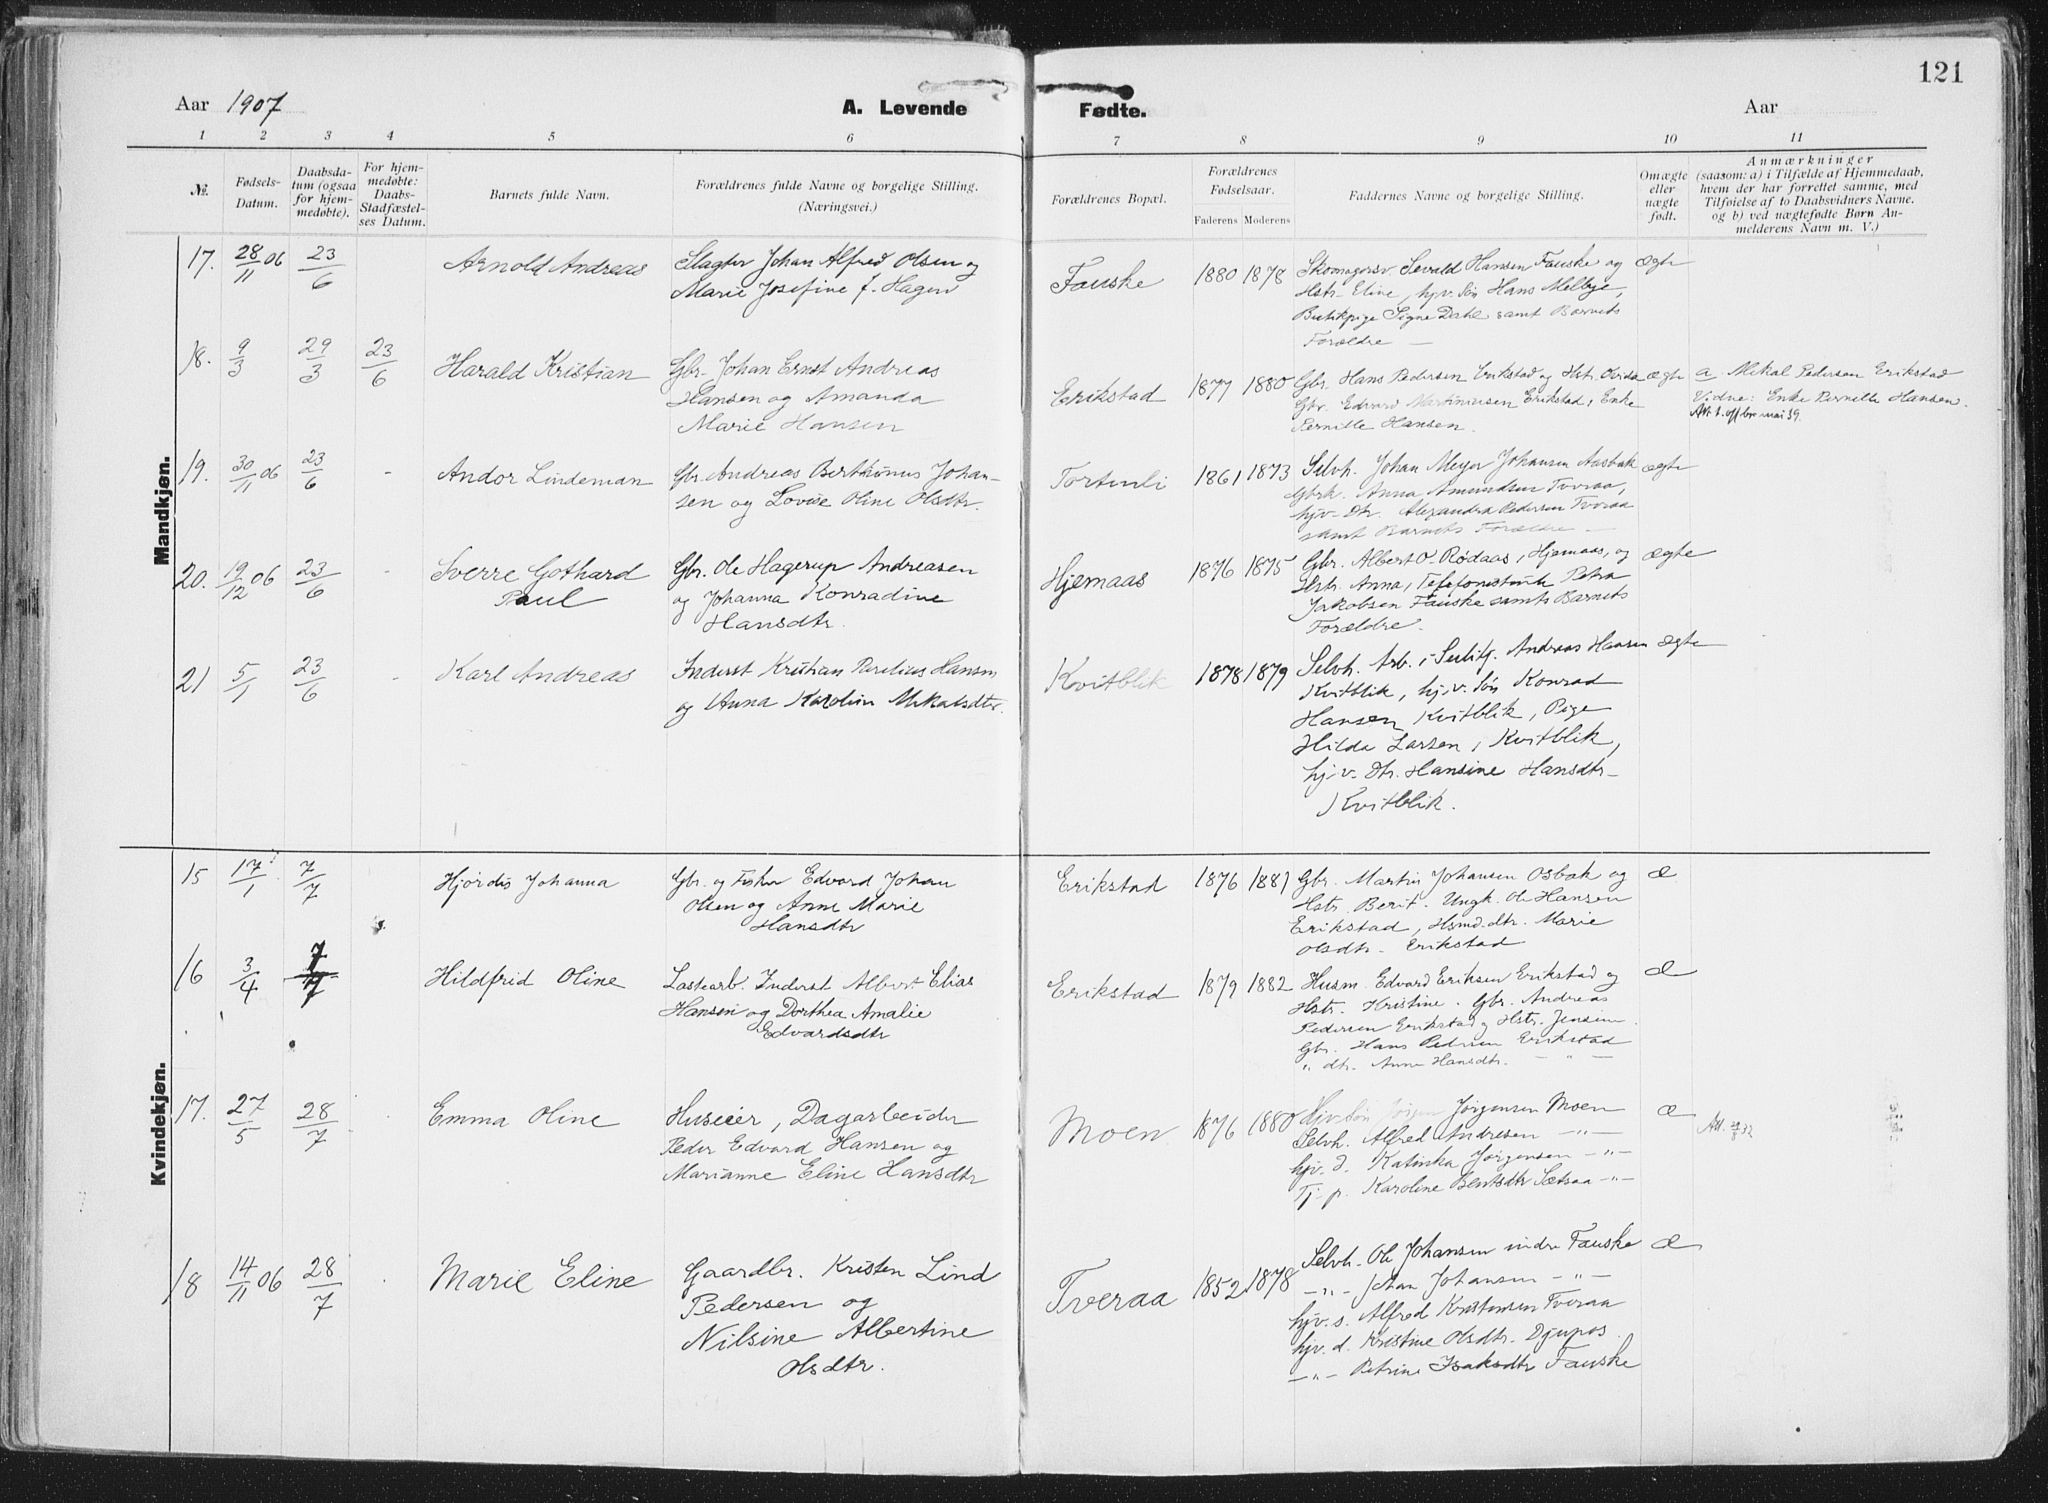 121
Aar 1907 A. Levende Fødte. Aar
1 2 3 4 5 6 7 8 9 10 11
№. Fødsels-Datum. Daabsdatum (ogsaa for hjemmedøbte). For hjemmedøbte: Daabs-Stadfæstelses Datum. Barnets fulde Navn. Forældrenes fulde Navne og borgelige Stilling. (Næringsvei.) Forældrenes Bopæl. Forældrenes Fødselsaar. Faderens Moderens Faddernes Navne og borgelige Stilling. Om ægte eller uægte født. Anmærkninger (saasom: a) i Tilfælde af Hjemmedaab, hvem der har forrettet samme, med Tilføielse af to Daabsvidners Navne. og b) ved uægtefødte Børn Anmelderens Navn m. V.)
Mandkjøn.
17. 28/11 06 23/6 Arnold Andreas
Slagter Johan Alfred Olsen og
Marie Josefine f. Hagen
Fauske 1880 1878
Skomagersv. Sevald Hansen Fauske og
Hstr. Eline, hjv. Søn Hans Melbye,
Butikpige Signe Dahl samt Barnets
Forældre —
ægte
18. 9/3 29/3 23/6 Harald Kristian
Gbr. Johan Ernst Andreas
Hansen og Amanda
Marie Hansen
Erikstad 1877 1880
Gbr. Hans Pedersen Erikstad og Hstr.
Gbr. Edvard Martinussen Erikstad, Enke
Pernille Hansen.
ægte
a. Mikal Pedersen Erikstad
Vidne: Enke Pernille Hansen.
19. 30/11 06 23/6 - Andor Lindeman
Gbr. Andreas Berthinus Johan-
sen og Lovise Oline Olsdtr.
Tortenli 1861 1873
Selvh. Johan Meyer Johansen Aasbak
Gbrk. Anna Amundsen Tveraa,
hjv. Dtr. Alexandra Pedersen Tveraa
samt Barnets Forældre —
ægte
20. 19/12 06 23/6 - Sverre Gothard
Paul
Gbr. Ole Hagerup Andreasen
og Johanna Konradine
Hansdtr.
Hjemaas 1876 1875
Gbr. Albert O. Rødaas, Hjemaas, og
Hstr. Anna, Telefonistinde Petra
Jakobsen Fauske samt Barnets
Forældre.
ægte
21 5/1 23/6 - Karl Andreas
Inderst Kristian Perelius Hansen
og Anna Karoline Mikalsdtr.
Kvitblik 1878 1879
Selvh. Arb. i Sulitj. Andreas Hansen
Kvitblik, hjv. Søn Konrad
Hansen Kvitblik, Pige
Hilda Larsen, Kvitblik,
hjv. Dtr. Hansine Hansdtr.
Kvitblik.
ægte
Kvindekjøn.
15 17/1 7/7 Hjördis Johanna
Gbr. og Fisker Edvard Johan
Olsen og Anne Marie
Hansdtr
Erikstad 1876 1881
Gbr. Martin Johansen Osbak og
Hstr. Berit. Ungk. Ole Hansen
Erikstad, Husmd. dtr. Marie
Olsdtr. Erikstad
æ
16 3/4 7/7 Hildfrid Oline
Lastearb. Inderst Albert Elias
Hansen og Dorthea Amalie
Edvardsdtr
Erikstad 1879 1882
Husm. Edvard Eriksen Erikstad og
Hstr. Kristine. Gbr. Andreas
Pedersen Erikstad og Hstr. Jensine.
Gbr. Hans Pedersen Erikstad
" dtr. Anne Hansdtr. — " —
æ
17. 27/5 28/7 Emma Oline
Huseier, Dagarbeider
Peder Edvard Hansen og
Marianne Eline Hansdtr
Moen 1876 1880
Hjv. Søn Jørgen Jørgensen Moen
Selvh. Alfred Andresen — " —
hjv. d. Katinka Jørgensen — " —
Tj. p. Karoline Bentsdtr Sætraa — " —
æ
18 14/11 06 28/7 Marie Eline
Gaardbr. Kristen Lind
Pedersen og
Nilsine Albertine
Olsdtr.
Tveraa 1852 1878
Selvh. Ole Johansen indre Fauske
— " — Johan Johansen — " —
hjv. s. Alfred Kristensen Tveraa
hjv. d. Kristine Olsdtr. Djupos
— " — Petrine Isaksdtr Fauske
æ